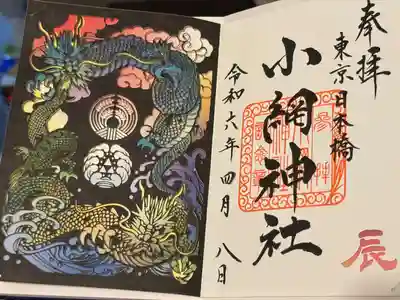 奉拝
東京日本橋
小網神社
令和六年四月八日
辰